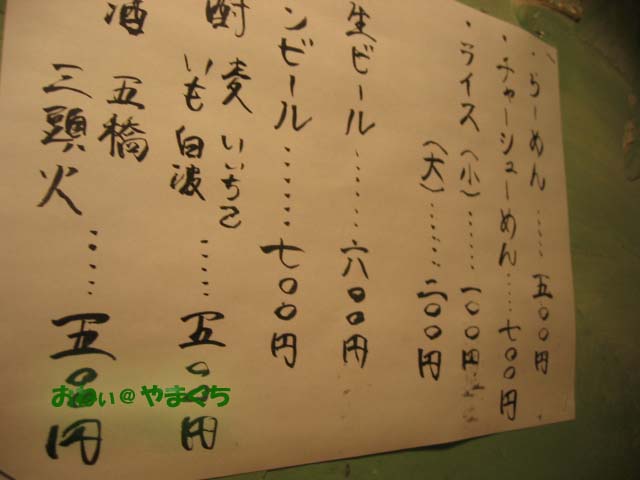 ・らーめん……五〇〇円
・チャーシューめん……七〇〇円
・ライス（小）……一〇〇円
（大）……二〇〇円
生ビール……六〇〇円
ンビール………七〇〇円
酎 麦 いいちこ
いも 白波……五〇〇円
酒 五橋
三頭火……五〇円
@やまぐち